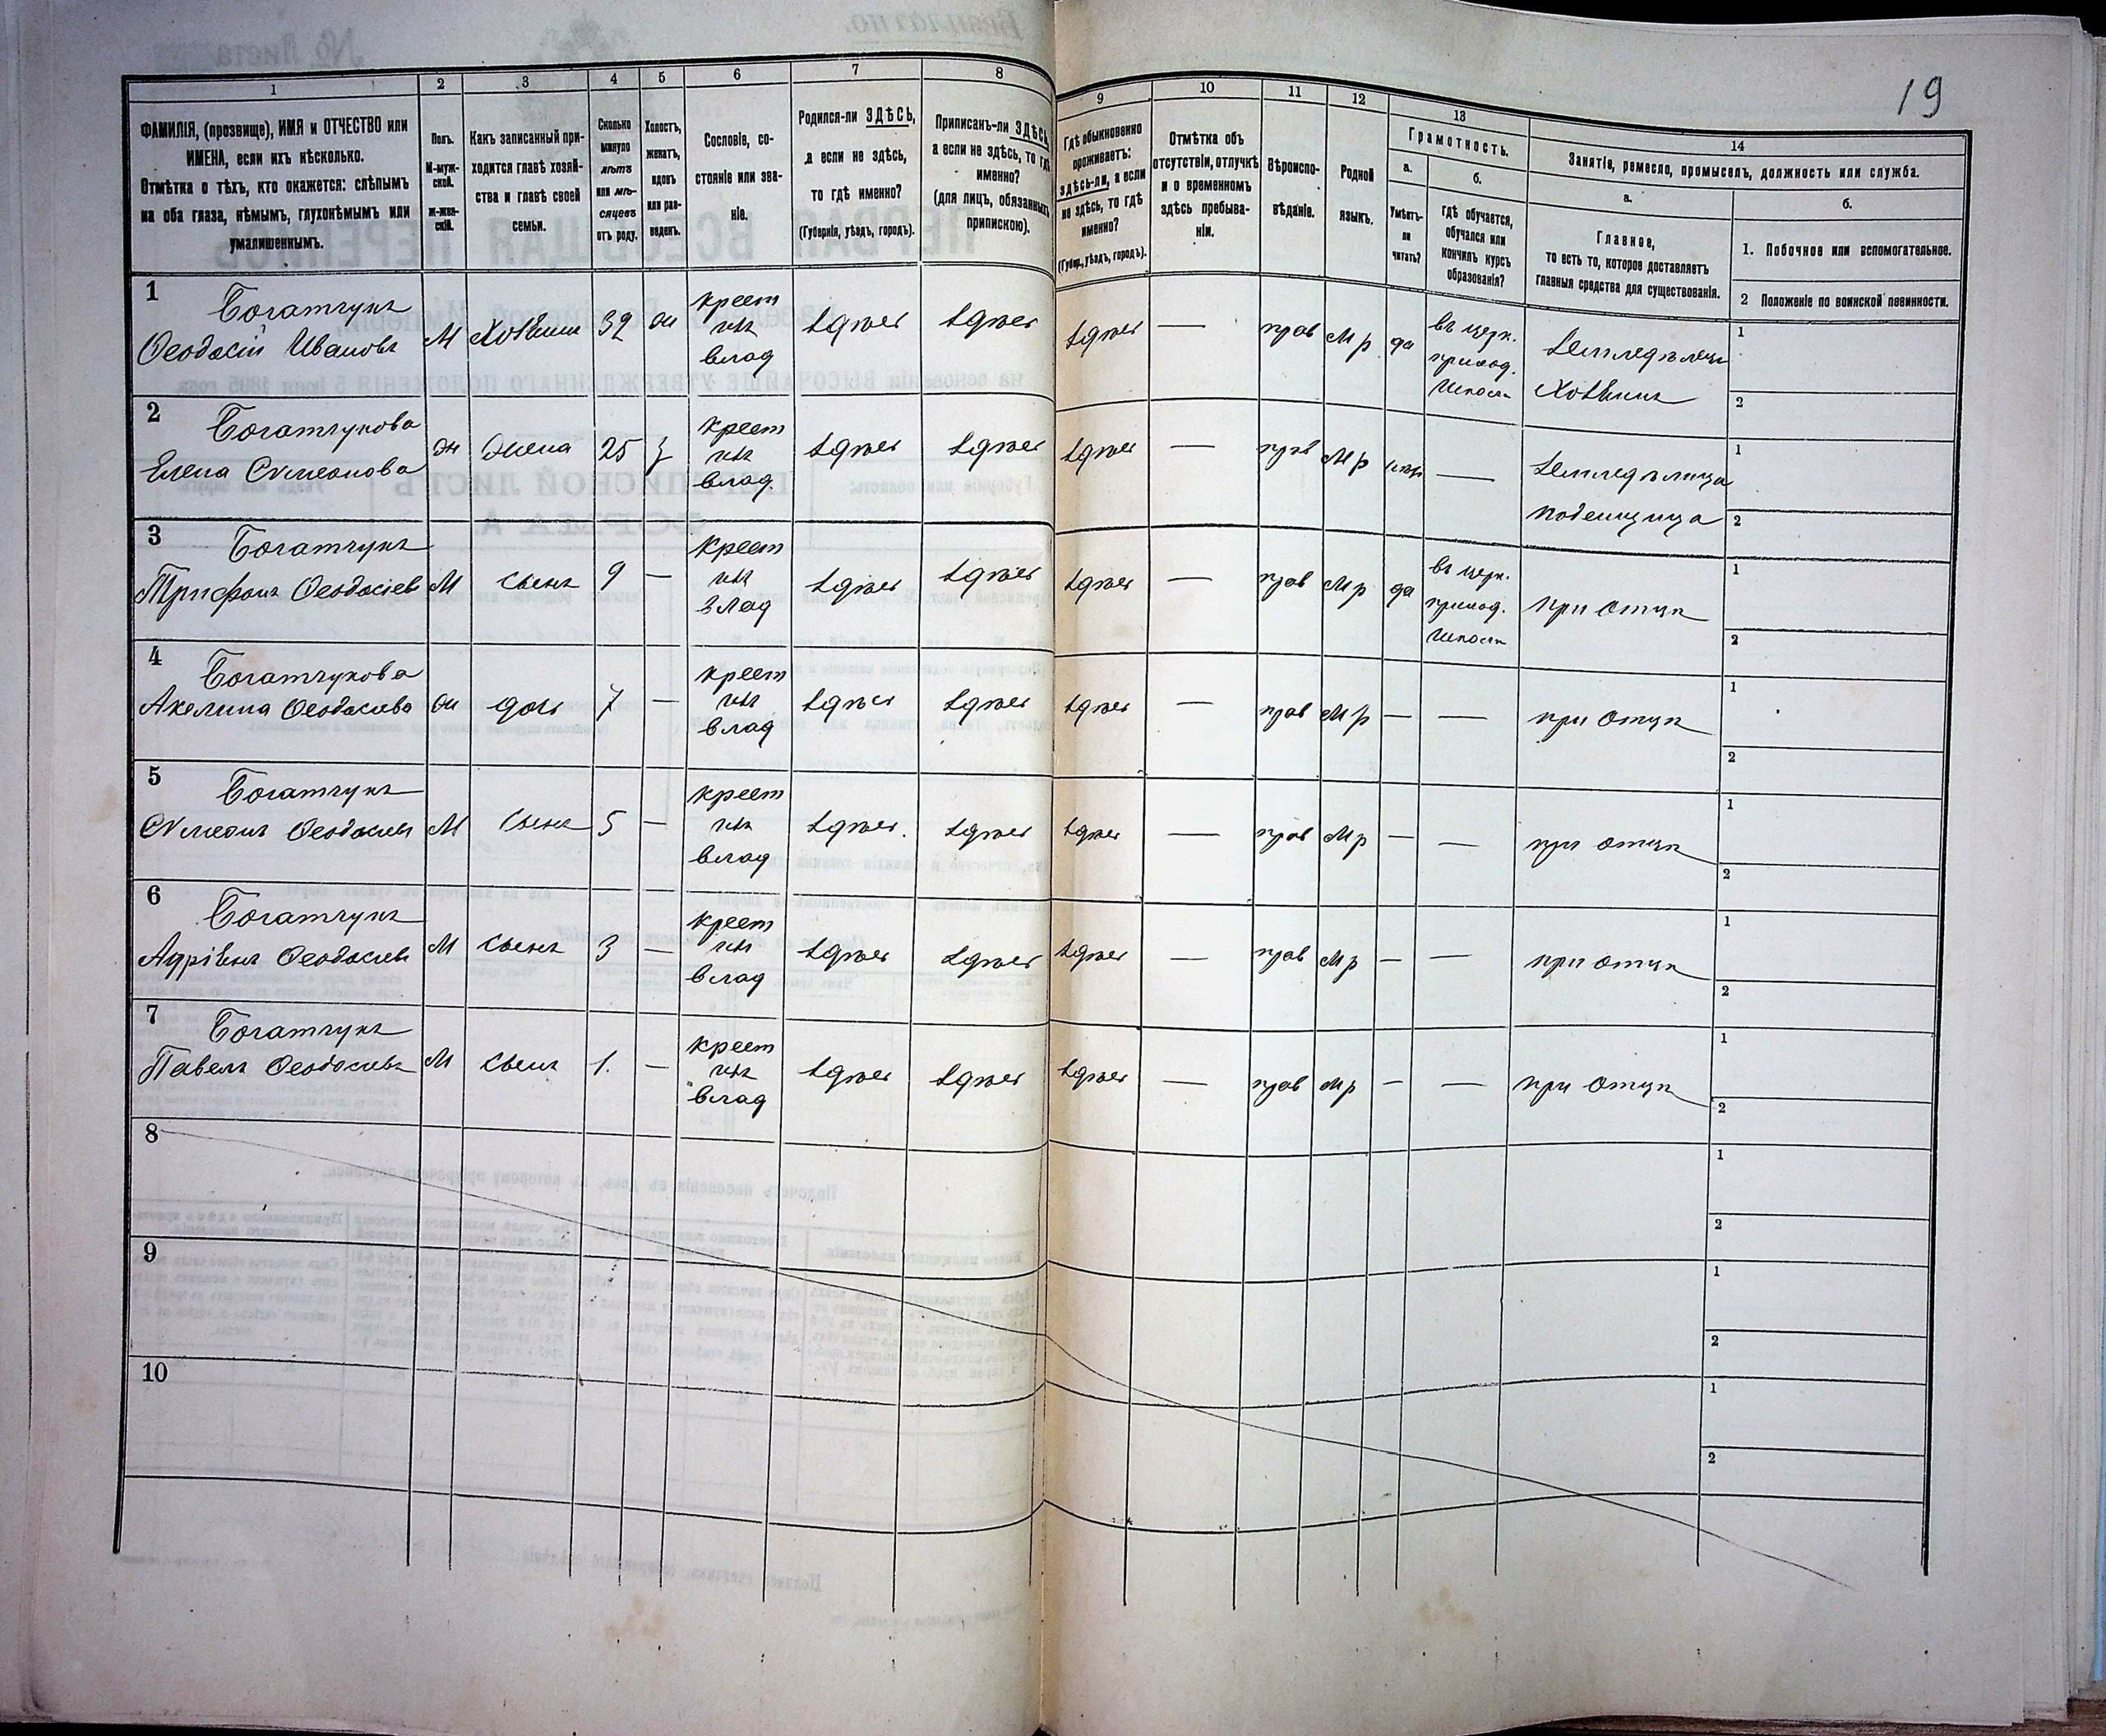 19
1
2
3
4
5
6
7
8
9
10
11
12
13
14
ФАМИЛІЯ, (прозвище), ИМЯ и ОТЧЕСТВО или
ИМЕНА, если ихъ нѣсколько.
Отмѣтка о тѣхъ, кто окажется: слѣпымъ
на оба глаза, нѣмымъ, глухонѣмымъ или
умалишеннымъ.
Полъ.
М-муж-
ской.
Ж-жен-
скій.
Какъ записанный при-
ходится главѣ хозяй-
ства и главѣ своей
семьи.
Сколько
минуло
лѣтъ
или мѣ-
сяцевъ
отъ роду.
Холостъ,
женатъ,
вдовъ
или раз-
веденъ.
Сословіе, со-
стояніе или зва-
ніе.
Родился-ли ЗДѢСЬ,
а если не здѣсь,
то гдѣ именно?
(Губернія, уѣздъ, городъ).
Приписанъ-ли ЗДѢСЬ,
а если не здѣсь, то гдѣ
именно?
(для лицъ, обязанныхъ
припискою).
Гдѣ обыкновенно
проживаетъ:
здѣсь-ли, а если
не здѣсь, то гдѣ
именно?
(Губер., уѣздъ, городъ).
Отмѣтка объ
отсутствіи, отлучкѣ
и о временномъ
здѣсь пребыва-
ніи.
Вѣроиспо-
вѣданіе.
Родной
языкъ.
Грамотность.
а.
Умѣетъ-
ли
читать?
б.
гдѣ обучается,
обучался или
кончилъ курсъ
образованія?
Занятіе, ремесло, промыселъ, должность или служба.
а.
Главное,
то есть то, которое доставляетъ
главныя средства для существованія.
б.
1. Побочное или вспомогательное.
2 Положеніе по воинской повинности.
1 Богатчукъ
Ѳеодосій Ивановъ М Хозяинъ 32 ж крест изъ влад здѣсь здѣсь здѣсь — прав Мр да въ церк. приход. школѣ Земледѣлецъ Хозяинъ 1 2
2 Богатчукова
Елена Симеонова ж жена 25 з крест изъ влад. здѣсь здѣсь здѣсь — прав Мр — Земледѣлица поденщица 1 2
3 Богатчукъ
Трифонъ Ѳеодосіев М сынъ 9 — крест изъ влад здѣсь здѣсь здѣсь — прав Мр да въ церк. приход. школѣ при отцѣ 1 2
4 Богатчукова
Акелина Ѳеодосіева ж дочь 7 — крест изъ влад здѣсь здѣсь здѣсь — прав Мр — — при отцѣ 1 2
5 Богатчукъ
Симеонъ Ѳеодосіевъ М сынъ 5 — крест изъ влад здѣсь здѣсь здѣсь — прав Мр — — при отцѣ 1 2
6 Богатчукъ
Ѳеодосіевъ М сынъ 3 — крест изъ влад здѣсь здѣсь здѣсь — прав Мр — — при отцѣ 1 2
7 Богатчукъ
Павелъ Ѳеодосіевъ М сынъ 1. — крест изъ влад здѣсь здѣсь здѣсь — прав Мр — — при отцѣ 1 2
8 1 2
9 1 2
10 1 2